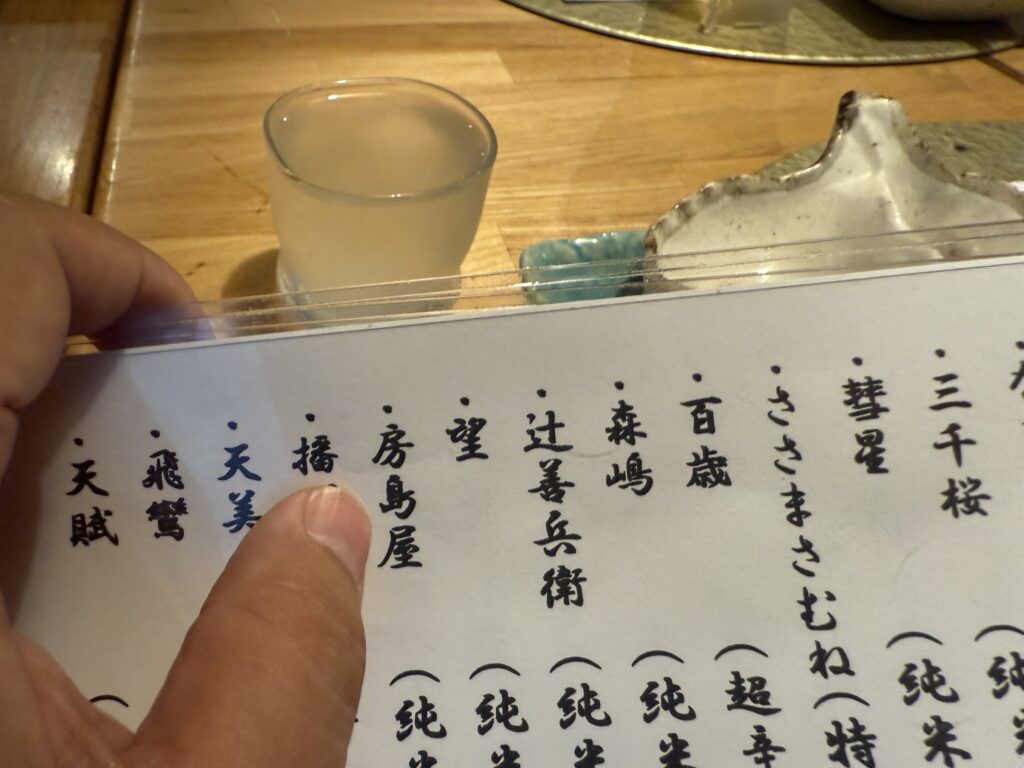 ・三千桜（純米
・彗星（純米
・ささまさむね（特
・百歳（超辛
・森嶋（純米
・辻善兵衛（純米
・望（純米
・房島屋（純米
・播
・天美
・飛鸞
・天賦